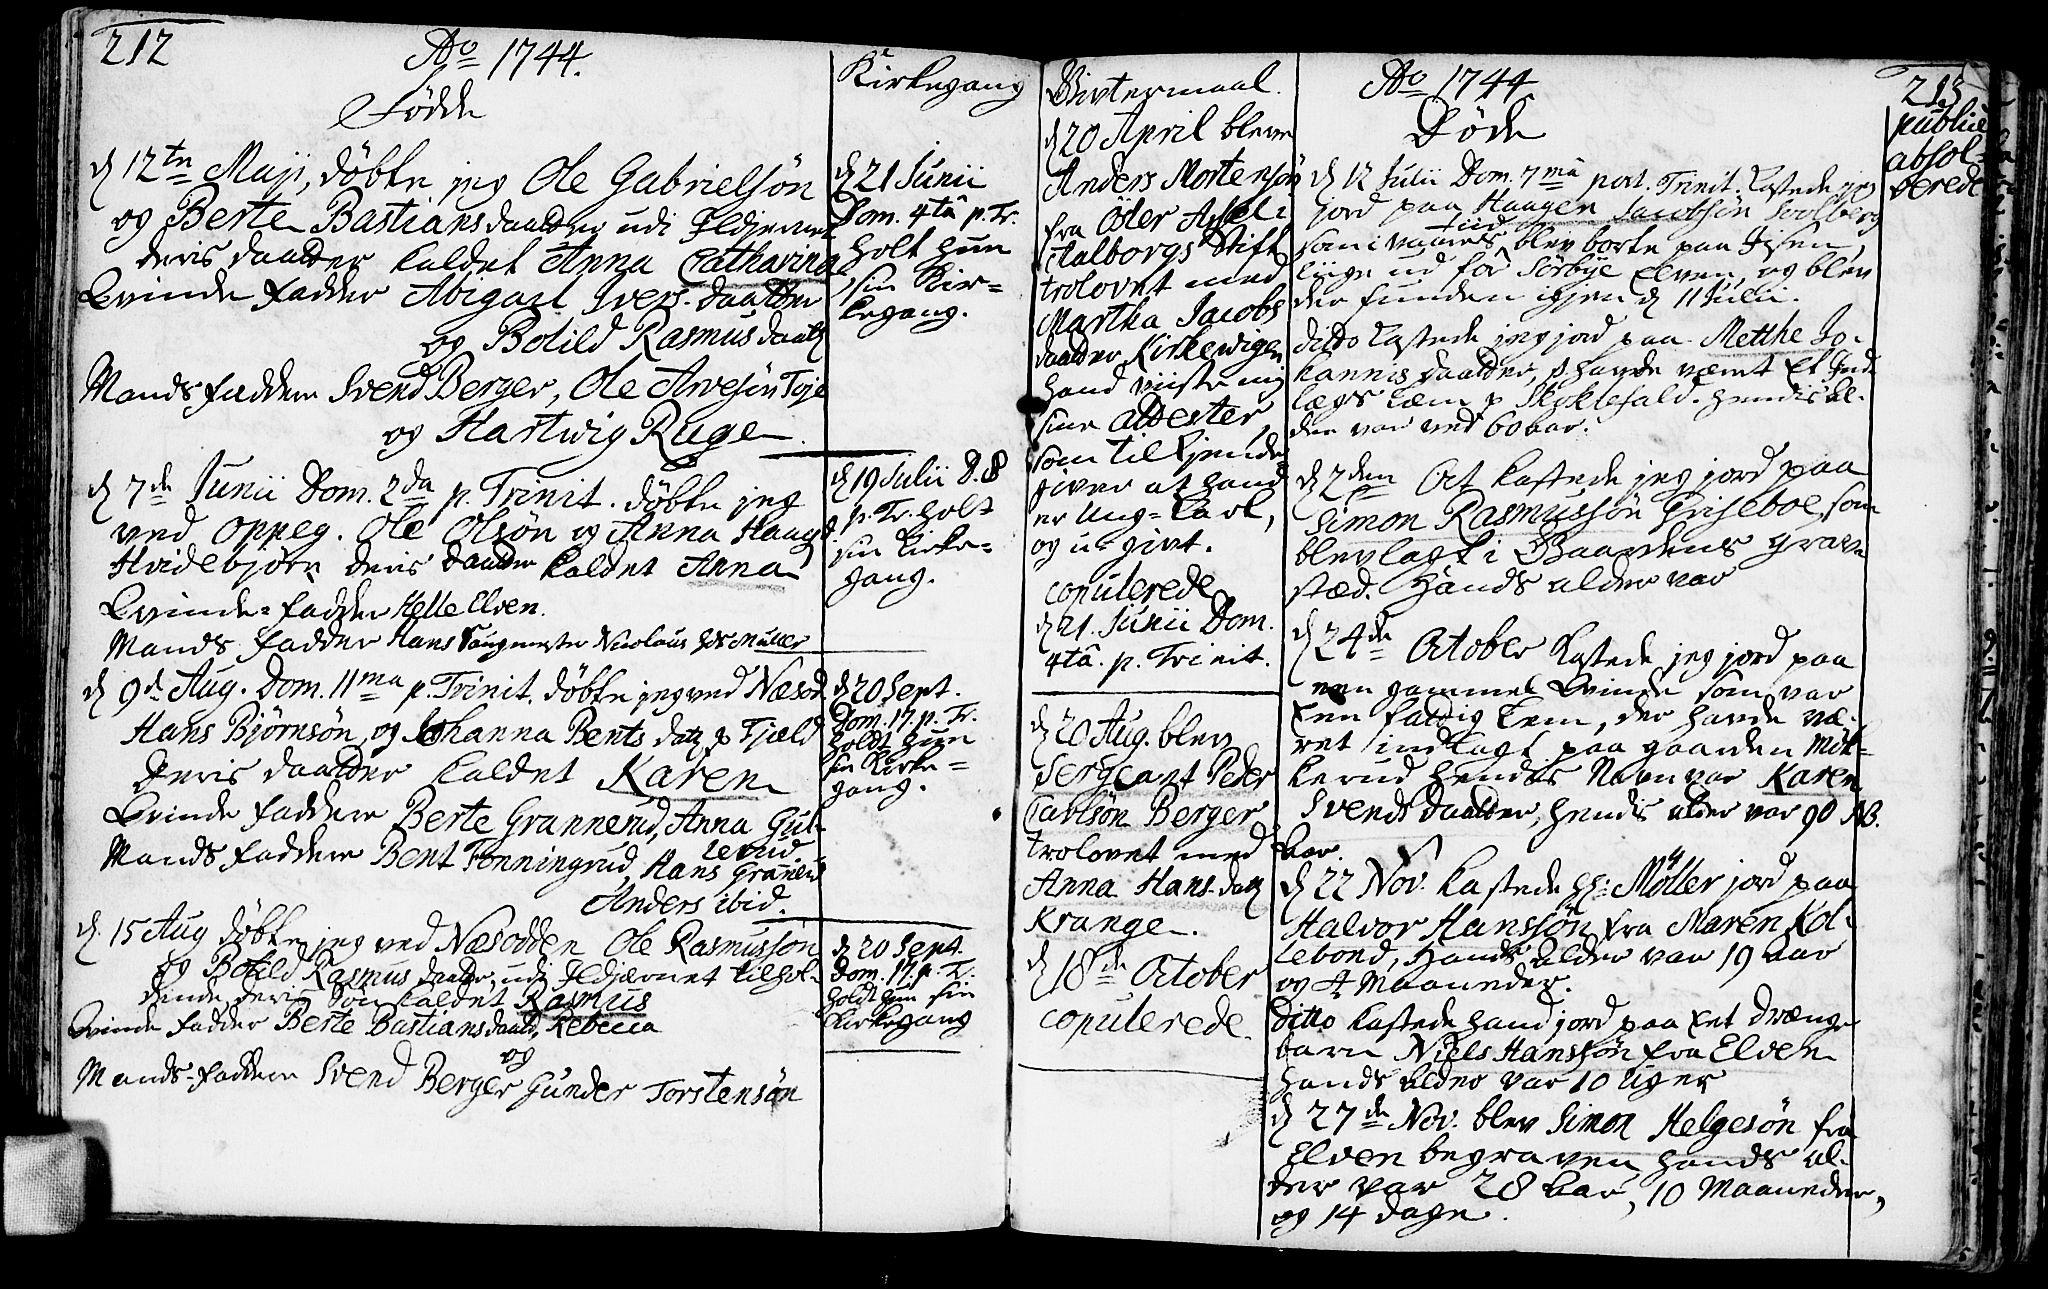 212
Ao 1744.
Fødde
d 12te Maji, døbte jeg Ole Gabrielsøn
og Berte Bastians daatter udi Ildjernet
deris daatter kaldet Anna Catharina
Qvinde fadder Abigael Ivers-daatter
og Botild Rasmus daatt
Mands faddere Svend Berger, Ole Arvesøn Teje
og Hartwig Ruge
d 7de Junii Dom. 2da p. Trinit. døbte jeg
ved Oppeg. Ole Olsøn og Anna Haags
Hvidebjørn deris daatter kaldet Anna
Qvinde-fadder Helle Elven.
Mands fadder Hans Saugmester Nicolaus Müller
d 9de Aug. Dom. 11ma p. Trinit. døbte jeg ved Næsod.
Hans Bjørnsøn, og Johanna Bents datt p Fjæld
Deris daatter kaldet Karen
Qvinde faddere Berte Grannerud, Anna Gul-
lerud
Mands faddere Bent Fonningrud, Hans Grannerud
Anders ibid.
d. 15 Aug døbte jeg ved Næsodden Ole Rasmussøn
og Botild Rasmus daatter, udi Ildjærnet tilhol-
dende, deris Søn kaldet Rasmus
Qvinde fadder Berte Bastians daatt, Rebecca
og
Mands-faddere Svend Berger Gunder Torstensøn
Kirkegang
d 21 Junii
Dom. 4ta p. Tr.
holt hun
sin Kir-
kegang.
d 19 Julii D. 8
p. Tr. holt
sin Kirke-
gang.
d 20 Sept.
Dom. 17. p. Tr.
holdt hun
sin Kirke-
gang.
d 20 Sept.
Dom. 17. p. Tr.
holdt hun sin
Kirkegang
Vivtermaal.
d 20 April bleve
Anders Mortensøn
fra Öster
Aalborgs Stift
trolovet med
Martha Jacobs
daatter Kirkewigen
hand viiste mig
sine attester,
som tilkjende
giver at hand
er Ung-karl,
og u-givt.
copulerede
d 21. Junii Dom.
4ta. p. Trinit.
d 20 Aug. blev
Sergeant Peder
Carlsøn Berger
trolovet med
Anna Hans-datt
Krange.
d 18de October
copulerede.
Ao 1744
Døde
213
publice
absol-
verede
d 12 Julii Dom. 7ma post. Trinit. kastede jeg
jord paa Haagen Jacobsøn Soelberg
tiid
som i vaares, blev borte paa Isen,
liige ud for Sörbye Elven, og blev
der funden igjen d 11 Julii.
ditto kastede jeg jord paa Metthe Jo-
hannis daatter, som havde været et Ind-
lægs lem p Skoklefald. hendis al-
der var ved 60 aar.
d 2den Oct kastede jeg jord paa
Simon Rasmussøn Griseboe, som
blev lagt i Gaardens grave
stæd. Hands alder var
d 24de October kastede jeg jord paa
een gammel Qvinde som var
een fattig lem, der havde væ-
ret indlagt paa gaarden Mik-
kerud hendes Navn var Karen
Svends daatter, hendis alder var 90 NB.
Aar.
d 22 Nov. kastede Hr: Møller jord paa
Halvor Hanssøn fra Maren Kol-
lebond, Hands alder var 19 aar
og 4 Maaneder.
Ditto kastede hand jord paa eet drænge
barn Niels Hanssøn fra Elven
hands alder var 10 Uger
d 27de Nov. blev Simon Helgesøn fra
Elven begraven hands al-
der var 28 Aar, 10 Maaneder,
og 14 dage.